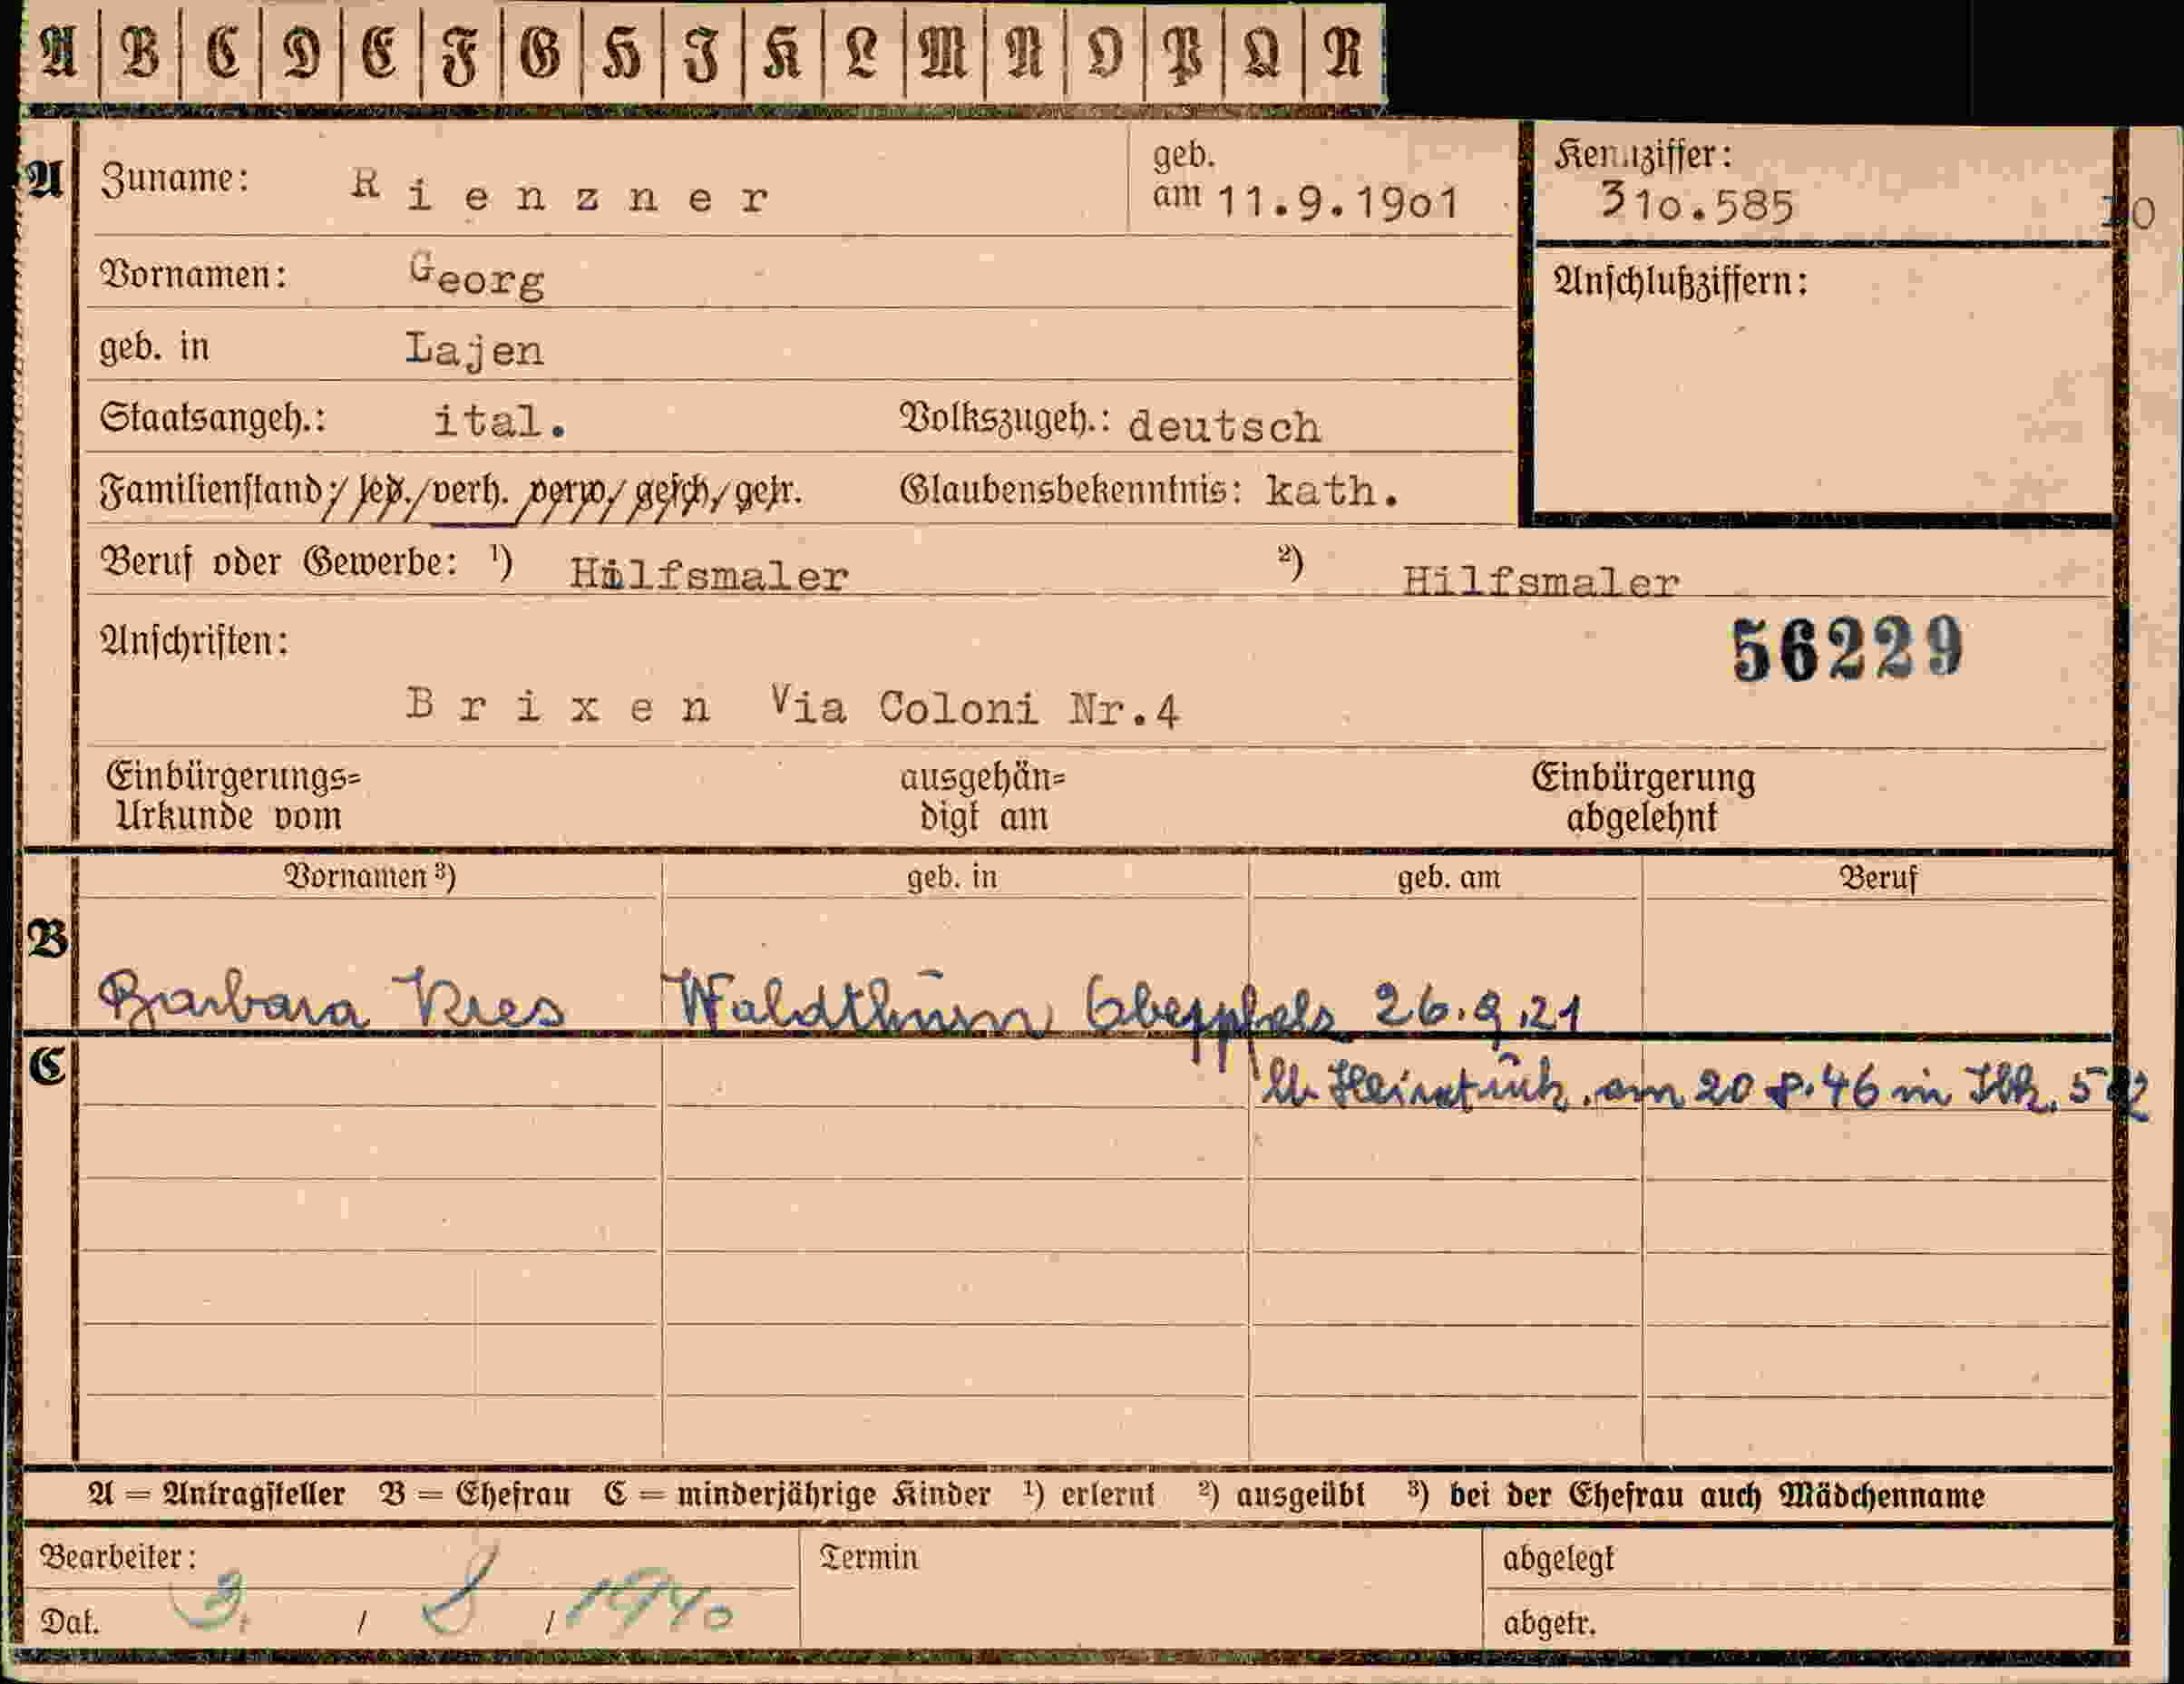 A B C D E F G H I K L M N O P Q R
A Zuname: Rienzner geb. am 11.9.1901 Kennziffer: 310.585
Vornamen: Georg Anschlußziffern:
geb. in Lajen
Staatsangeh.: ital. Volkszugeh.: deutsch
Familienstand: led. verh. verw. gesch. getr. Glaubensbekenntnis: kath.
Beruf oder Gewerbe: ¹) Hilfsmaler ²) Hilfsmaler
Anschriften: 56229
Brixen Via Coloni Nr.4
Einbürgerungs= ausgehän= Einbürgerung
Urkunde vom digt am abgelehnt
Vornamen ³) geb. in geb. am Beruf
B Barbara Waldthurn Oberpfalz 26.9.21
C lt. am 20 8.46 in Ibk.
A = Antragsteller B = Ehefrau C = minderjährige Kinder ¹) erlernt ²) ausgeübt ³) bei der Ehefrau auch Mädchenname
Bearbeiter: Termin abgelegt
Dat. 3. / 8 / 1940 abgetr.